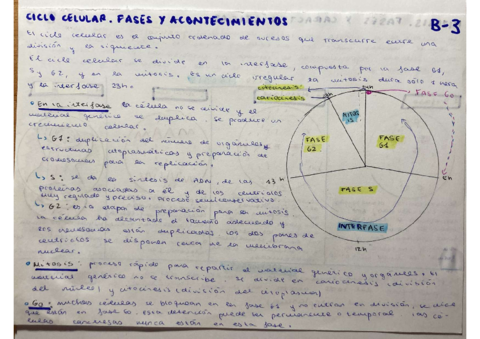 CICLO CELULAR. FASES Y ACONTECIMIENTOS
B-3
El ciclo celular es el conjunto ordenado de sucesos que transcurre entre una
división y la siguiente.
El ciclo celular se divide en la interfase, compuesta por la fase G1,
S y G2, y en la mitosis. Es un ciclo irregular la mitosis dura sólo 1 hora
y la interfase 23h.
citocinesis
cariocinesis
24h
FASE G0
MITOSIS
FASE G2
FASE G1
FASE S
INTERFASE
12h
En la interfase la célula no se divide y el
material genético se duplica. Se produce un
crecimiento celular.
↳ G1: duplicación del número de orgánulos y
estructuras citoplasmáticas y preparación de
cromosomas para la replicación.
↳ S: se da la síntesis de ADN, de las
proteínas asociadas a él y de los centriolos
muy regulado y preciso. Proceso semiconservativo
↳ G2: es la etapa de preparación para la mitosis
la célula ha alcanzado el tamaño adecuado y
sus los dos pares de
centriolos se disponen cerca de la membrana
nuclear.
Mitosis: proceso rápido para repartir el material genético y orgánulos. El
material genético no se transcribe. Se divide en cariocinesis (división
del núcleo) y citocinesis (división del citoplasma)
G0: muchas células se bloquean en la fase G1 y no entran en división, se dice
que están en fase G0. Esta detención puede ser permanente o temporal. Las
células cancerosas nunca están en esta fase.